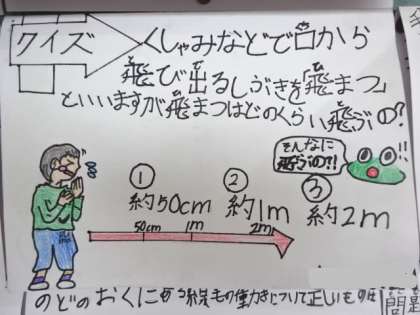 クイズ
くしゃみなどで口から
飛び出るしぶきを「飛まつ」
といいますが飛まつはどのくらい飛ぶの?
そんなに
飛ぶの?!
① ② ③
約50cm 約1m 約2m
50cm 1m 2m
のどのおくに
について正しいものは
問題